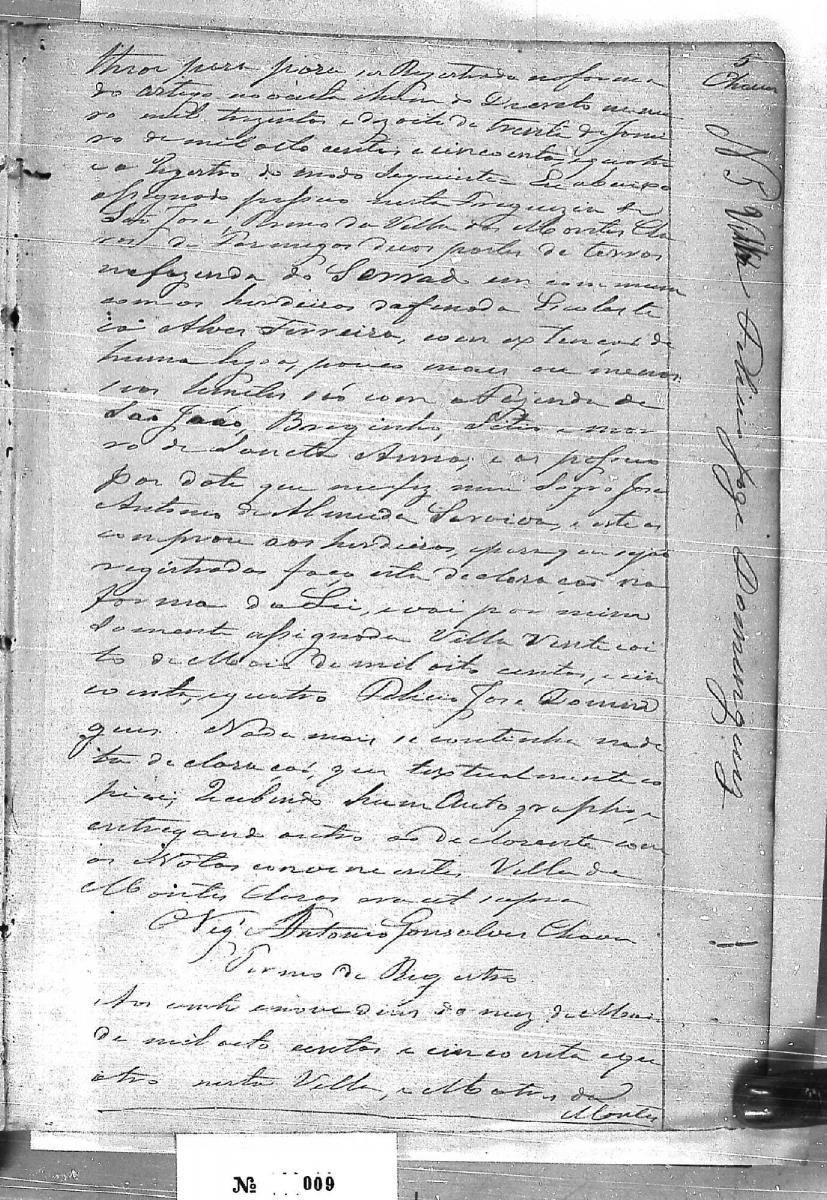 5
Chaves
N 5 Villa Felicio Jose Domingues
para para ser Registrada na forma
do artigo noventa e hum do Decreto nume
ro mil trezentos e dezoito de trinta de Janei
ro de mil oito centos e cincoenta e quatro
e o Registro do modo Seguinte Eu abaixo
assignado possuo nesta Freguezia de
São Jose, Termo da Villa dos Montes Cla
ros de Formigas duas partes de terras
na fazenda do Serrado em commum
com os herdeiros da finada Escolasti
ca Alves Ferreira, com extenção de
huma legoa, pouco mais ou menos
seos limites são com a Fazenda de
São João, Brejinho, Sitio e mor
ro de Sancta Anna, e as possuo
por dote que me fez meu Sogro Jose
Antonio de Almeida Saraiva, e este as
comprou aos herdeiros, e para que sejão
registradas faço esta declaração na
forma da Lei, e vai por mim
somente assignada Villa Vinte e oi
to de Maio de mil oito centos, e cin
coenta, e quatro Felicio Jose Domin
gues. Nada mais se continha na di
ta declaração, que textualmente co
piei, recebendo hum Autographo, e
entregando outro ao declarante com
as Notas convenientes Villa de
Montes Claros era ut supra
Vigº Antonio Gonsalves Chaves
Termo de Registro
Aos vinte e nove dias do mez de Maio
de mil oito centos e cincoenta e qu
atro nesta Villa, e Matris de
Montes
Nº 009